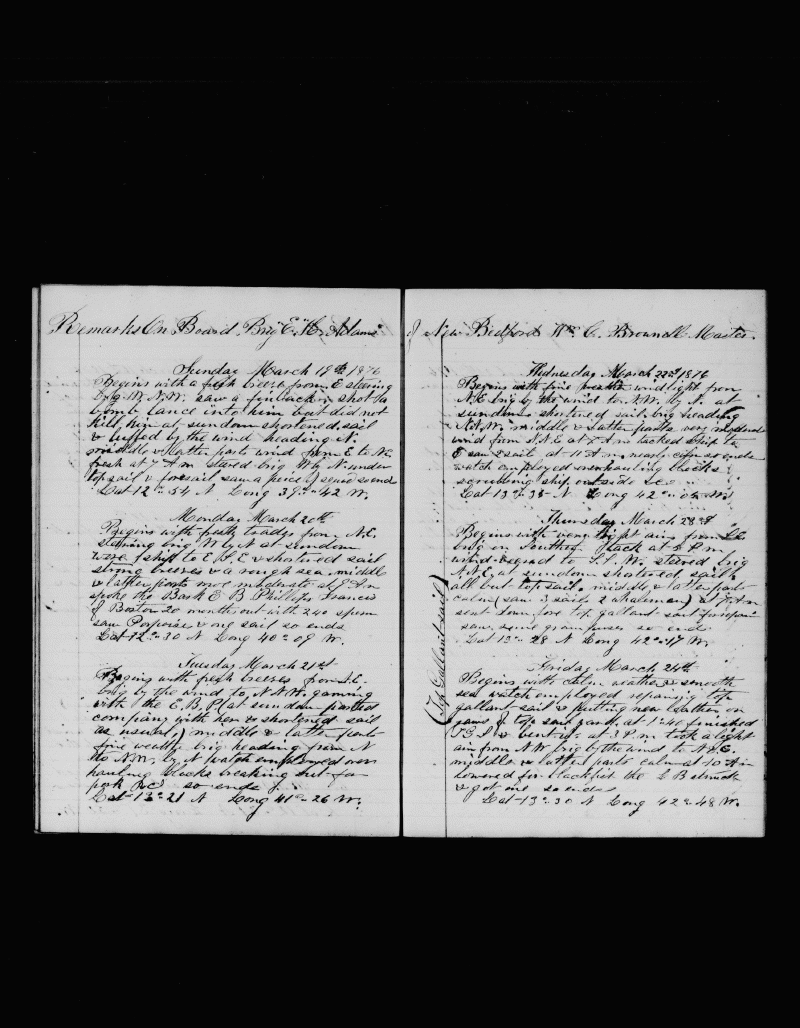 Remarks On Board Brig "E. H. Adams"
Sunday March 19th 1876
Begins with a fresh breeze from E steering
brig W.N.W. saw a finback shot a
bomb lance into him but did not
kill him at sundown shortened sail
& luffed by the wind heading N.
middle & latter parts wind from E to N.E
fresh at 7 Am steared brig W by N under
topsail & foresail saw a piece of so ends
Lat 12°-54 N Long 39°-42 W.
Monday March 20th
Begins with fresh trades from N.E.
steering brig W by N at sundown
wore ship to E.S.E & shortened sail
strong breezes & a rough sea middle
& latter parts more moderate at 9 Am
spoke the Bark E B Phillips Francis
of Boston 20 months out with 240 sperm
saw Porpoises & one sail so ends
Lat 12°-30 N Long 40°-09 W.
Tuesday March 21st
Begins with fresh breezes from N.E.
brig by the wind to N.N.W. gamming
with the E.B.P. at sundown parted
company with her & shortened sail
as usual, middle & latter parts
fine weather brig heading from N
to NW. by N watch employed over
hauling blocks breaking out for
pork &c so ends
Lat 13°-21 N Long 41°-26 W.
of New Bedford Wm C. Brownell Master.
Wednesday March 22nd 1876
Begins with fine weather wind light from
N.E. brig by the wind to N.W. by N. at
sundown shortened sail. brig heading
N.N.W. middle & latter parts very moderate
wind from N.N.E at 7 Am tacked ship to
E saw a sail at 11 Am nearly calm so ends
watch employed overhauling blocks
scrubbing ship outside &c
Lat 13°-35 N Long 42°-04 W.
Thursday March 23rd
Begins with very light airs from
brig on Southern tack at 2 P.m
wind to S.S.W. steared brig
N.N.E. at sundown shortened sail
all but topsail. middle & latter parts
calm (saw 3 sails 2 whalemen) at 7 Am
sent down fore top gallant sail for repair
saw some grampuses so ends
Lat 13°-28 N Long 42°-17 W.
(Top Gallant sail)
Friday March 24th
Begins with calm weather & smooth
sea watch employed repairing top
gallant sail & putting new leather on
jaws of top sail yard, at 1-40 finished
T G S & bent it. at 3 P.m. took a light
air from N.W. brig by the wind to N.N.E.
middle & latter parts calm at 10 Am
lowered for blackfish the L B struck
& got one so ends
Lat 13°-30 N Long 42°-48 W.